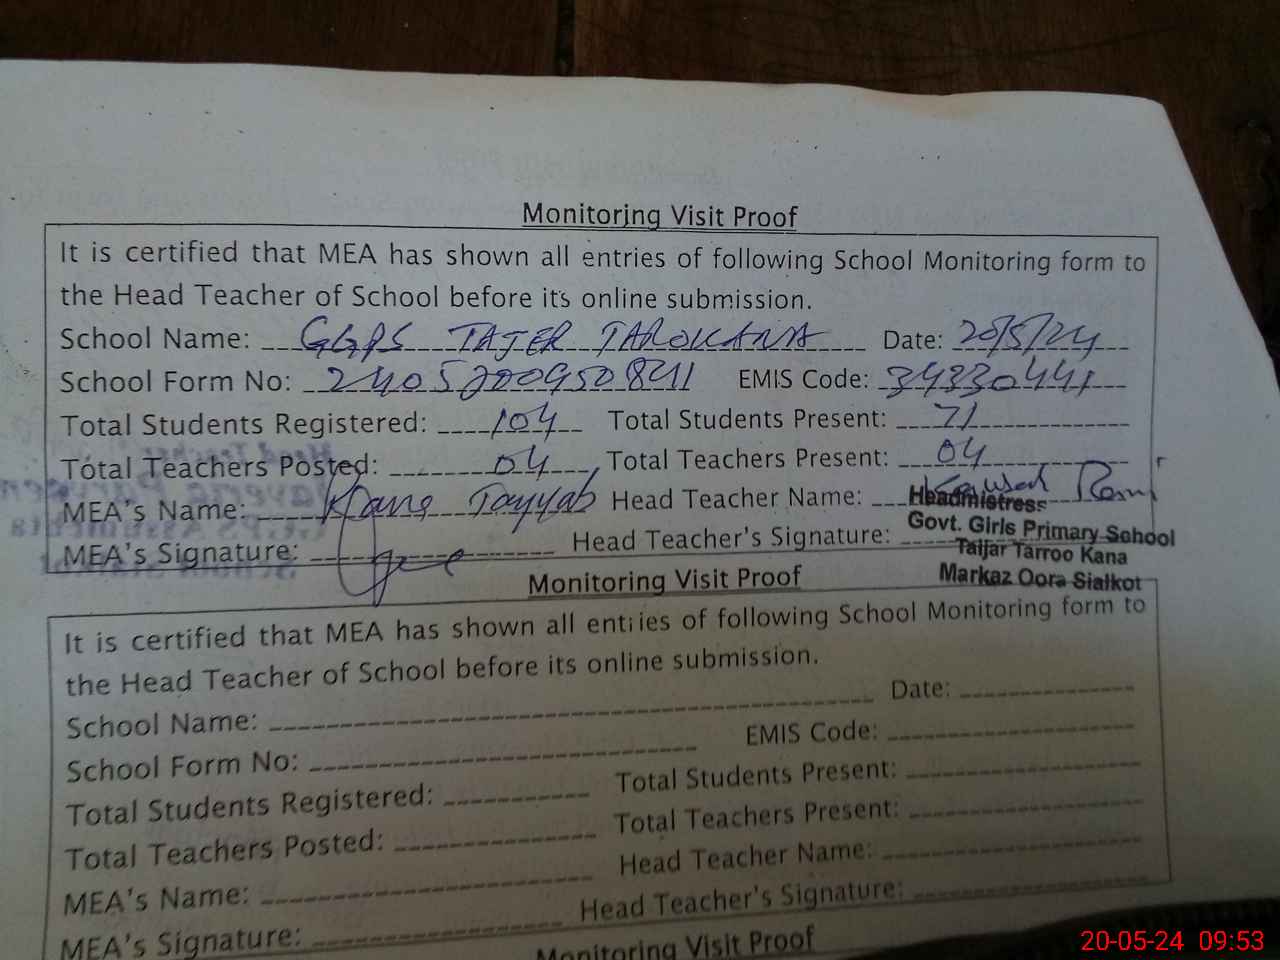 Monitoring Visit Proof
It is certified that MEA has shown all entries of following School Monitoring form to
the Head Teacher of School before its online submission.
School Name: GGPS TAJER TAROKANA Date: 20/5/24
School Form No: 2405200950841 EMIS Code: 34330441
Total Students Registered: 104 Total Students Present: 71
Total Teachers Posted: 04, Total Teachers Present: 04
MEA's Name: Tayyab Head Teacher Name:
Headmistress
MEA's Signature: Head Teacher's Signature:
Govt. Girls Primary School
Taijar Tarroo Kana
Markaz Oora Sialkot
Monitoring Visit Proof
It is certified that MEA has shown all entries of following School Monitoring form to
the Head Teacher of School before its online submission.
School Name: Date:
School Form No: EMIS Code:
Total Students Registered: Total Students Present:
Total Teachers Posted: Total Teachers Present:
MEA's Name: Head Teacher Name:
MEA's Signature: Head Teacher's Signature:
Monitoring Visit Proof
20-05-24 09:53